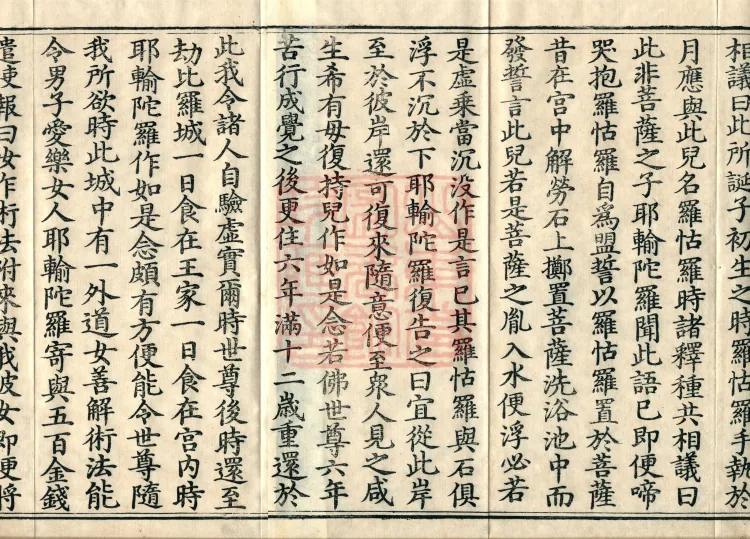 相議曰此所誕子初生之時羅怙羅手執於
月應與此兒名羅怙羅時諸釋種共相議曰
此非菩薩之子耶輸陀羅聞此語已即便啼
哭抱羅怙羅自爲盟誓以羅怙羅置於菩薩
昔在宮中解勞石上擲置菩薩洗浴池中而
發誓言此兒若是菩薩之胤入水便浮必若
是虛乘當沉没作是言已其羅怙羅與石俱
浮不沉於下耶輸陀羅復告之曰宜從此岸
至於彼岸還可復來隨意便至衆人見之咸
生希有母復持兒作如是念若佛世尊六年
苦行成覺之後更住六年滿十二歲重還於
此我令諸人自驗虛實爾時世尊後時還至
劫比羅城一日食在王家一日食在宮內時
耶輸陀羅作如是念頗有方便能令世尊隨
我所欲時此城中有一外道女善解術法能
令男子愛樂女人耶輸陀羅寄與五百金錢
遣使報曰汝作術法附來與我彼女即便將